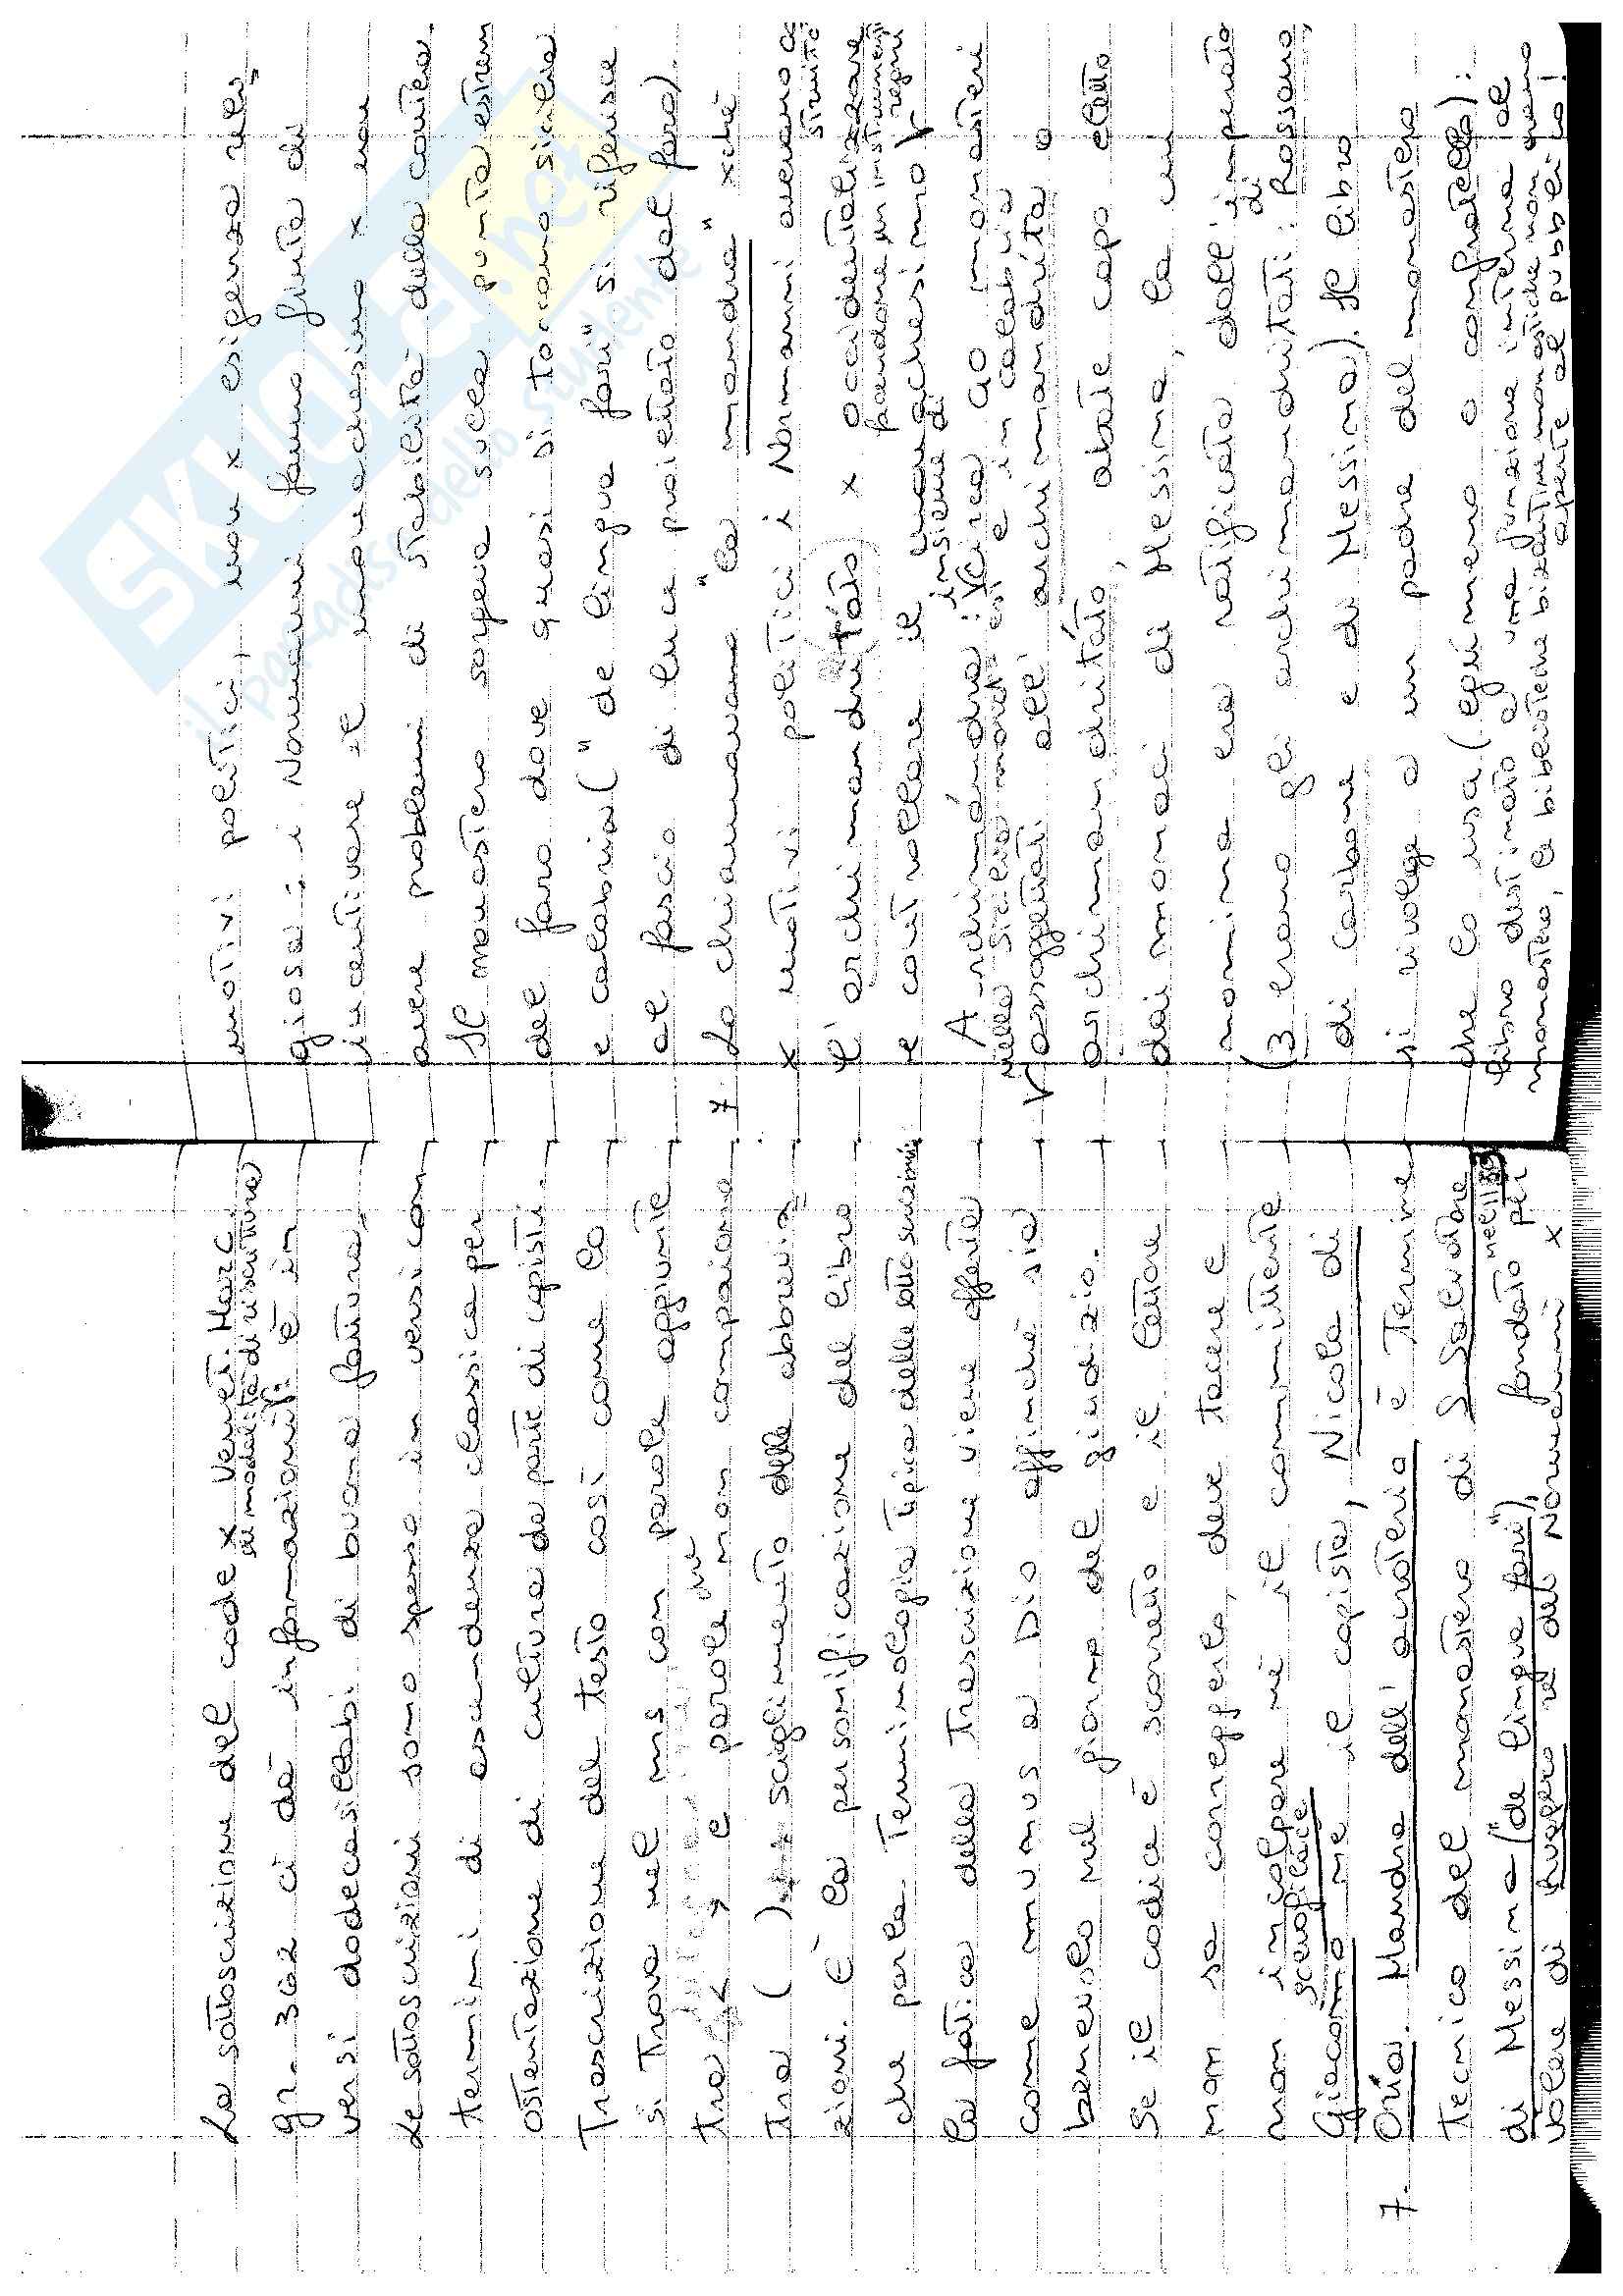 La sottoscrizione del codex Venet. Marc.
gr. 362 ci dà informazioni: è in
sui modalità di riscrittura
versi dodecasillabi di buona fattura,
Le sottoscrizioni sono spesso in versi con
termini di ascendenza classica per
ostentazione di cultura da parte di copisti.
Trascrizione del testo così come lo
si trova nel ms con parole aggiunte
tra < > e parole che non compaiono
tra ( ) scioglimento delle abbrevia=
zioni. È la personificazione del libro
che parla. Terminologia tipica delle sottoscrizioni:
la fatica della trascrizione viene offerta
come munus a Dio affinché sia
benevolo nel giorno del giudizio.
Se il codice è scorretto e il lettore
non sa correggerlo, deve tacere e
non incolpare né il committente
scevofilace
Giacomo né il copista, Nicola di
7. Oria. Mandra dell'acroteria è termine
tecnico del monastero di S. Salvatore
di Messina ("de lingua fari"), fondato per
volere di Ruggero re dei Normanni x
motivi politici, non x esigenza reli=
giosa: i Normanni fanno finta di
incentivare il monachesimo x non
avere problemi di stabilità della corona.
Il monastero sorgeva sulla punta estrem
del faro dove quasi si toccano sicilia
e calabria ("de lingua fari" si riferisce
al fascio di luce proiettato dal faro).
7 Lo chiamavano "la mandra" xché
x motivi politici i Normanni avevano co
struito
l'archimandritato x occidentalizzare
e controllare il monachesimo
Archimandra: insieme di
circa 40 monasteri
nella Sicilia e in calabria
assoggettati all'archimandrita o
archimandritato, abate capo eletto
dai monaci di Messina, la cui
nomina era ratificata dall'imperato
(3 erano gli archimandritati: di Rossano,
di Carbone e di Messina). Il libro
si rivolge a un padre del monastero
che lo usa (egumeno o confratello):
libro destinato a una funzione interna al
monastero, le biblioteche bizantine monastiche non erano
aperte al pubblico!
SKUOLA.net
il paradiso dello studente